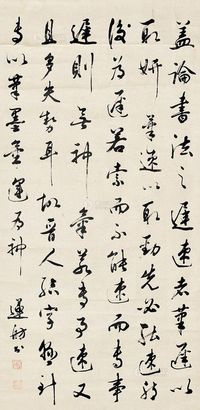 盖論書法之遲速者筆遲以
取妍筆速以取勁先必能速然
後為遲若素而不能速而專事
遲則無神氣若專事速又
且多失勢耳故晉人結字
專以筆墨運為神